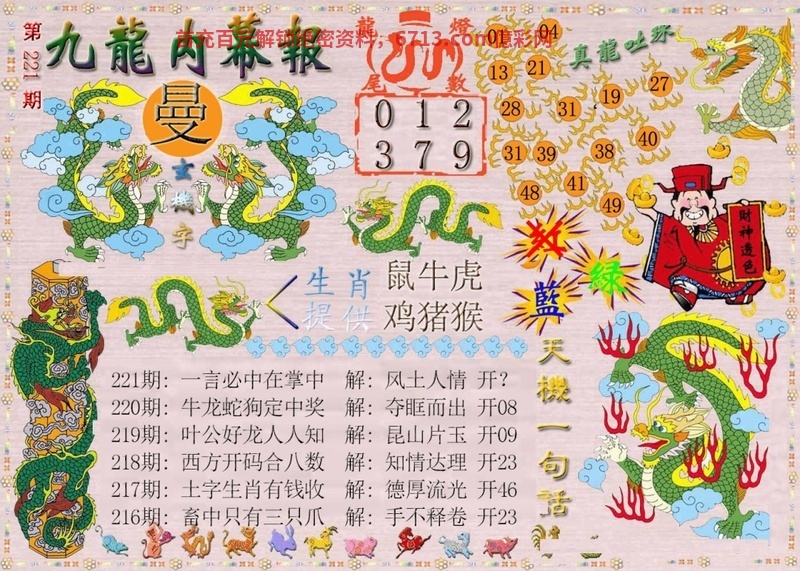 首充百元解锁绝密资料，6713.com億彩网
第221期
九龍内幕报
曼
玄機字
龍燈
尾數
0 1 2
3 7 9
真龍吐珠
01
04
13
21
28
31
19
27
31
39
38
40
48
41
49
財神透色
红
綠
藍
生肖提供
鼠牛虎
鸡猪猴
221期：一言必中在掌中 解：风土人情 开？
220期：牛龙蛇狗定中奖 解：夺眶而出 开08
219期：叶公好龙人人知 解：昆山片玉 开09
218期：西方开码合八数 解：知情达理 开23
217期：土字生肖有钱收 解：德厚流光 开46
216期：畜中只有三只爪 解：手不释卷 开23
天機一句話